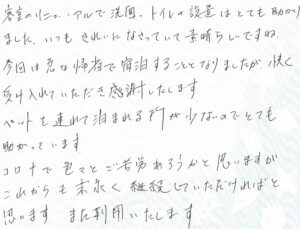 客室のリニューアルで洗面、トイレの設置はとても助かり
ました。いつもきれいになさっていて素晴らしいですね。
今回は急な帰省で宿泊することとなりましたが、快く
受け入れていただき感謝いたします。
ペットを連れて泊まれる所が少ないのでとても
助かっています
コロナで色々とご苦労あろうかと思いますが
これからも末永く継続していただければと
思います また利用いたします